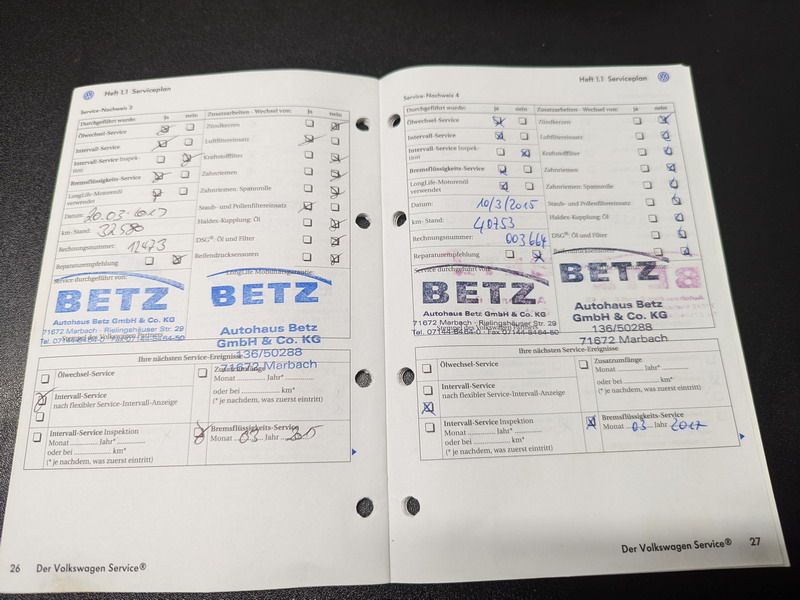 Heft 1.1 Serviceplan
Service-Nachweis 3
Durchgeführt wurde: ja nein Zusatzarbeiten · Wechsel von: ja nein
Ölwechsel-Service Zündkerzen
Intervall-Service Luftfiltereinsatz
Intervall-Service Inspek-
tion Kraftstofffilter
Bremsflüssigkeits-Service Zahnriemen
LongLife-Motorenöl
verwendet Zahnriemen: Spannrolle
Datum: 20.03. Staub- und Pollenfiltereinsatz
km-Stand: 32580 Haldex-Kupplung: Öl
Rechnungsnummer: 12473 DSG®: Öl und Filter
Reparaturempfehlung Reifendrucksensoren
Service durchgeführt von: LongLife Mobilitätsgarantie:
BETZ BETZ
Autohaus Betz
GmbH & Co. KG
71672 Marbach · Rielingshäuser Str. 29
Autohaus Betz
GmbH & Co. KG
136/50288
71672 Marbach
Ihre nächsten Service-Ereignisse
Ölwechsel-Service Zusatzumfänge
Monat Jahr*
oder bei km*
(* je nachdem, was zuerst eintritt)
Intervall-Service
nach flexibler Service-Intervall-Anzeige
Intervall-Service Inspektion
Monat Jahr*
oder bei km*
(* je nachdem, was zuerst eintritt)
Bremsflüssigkeits-Service
Monat 03 Jahr 2015
26 Der Volkswagen Service®
Heft 1.1 Serviceplan
Service-Nachweis 4
Durchgeführt wurde: ja nein Zusatzarbeiten · Wechsel von: ja nein
Ölwechsel-Service Zündkerzen
Intervall-Service Luftfiltereinsatz
Intervall-Service Inspek-
tion Kraftstofffilter
Bremsflüssigkeits-Service Zahnriemen
LongLife-Motorenöl
verwendet Zahnriemen: Spannrolle
Datum: 10/3/2015 Staub- und Pollenfiltereinsatz
km-Stand: 40753 Haldex-Kupplung: Öl
Rechnungsnummer: 003664 DSG®: Öl und Filter
Reparaturempfehlung Reifendrucksensoren
Service durchgeführt von:
BETZ BETZ
Autohaus Betz
GmbH & Co. KG
71672 Marbach · Rielingshäuser Str. 29
Autohaus Betz
GmbH & Co. KG
136/50288
71672 Marbach
Ihre nächsten Service-Ereignisse
Ölwechsel-Service Zusatzumfänge
Monat Jahr*
oder bei km*
(* je nachdem, was zuerst eintritt)
Intervall-Service
nach flexibler Service-Intervall-Anzeige
Intervall-Service Inspektion
Monat Jahr*
oder bei km*
(* je nachdem, was zuerst eintritt)
Bremsflüssigkeits-Service
Monat 03 Jahr 2017
Der Volkswagen Service® 27